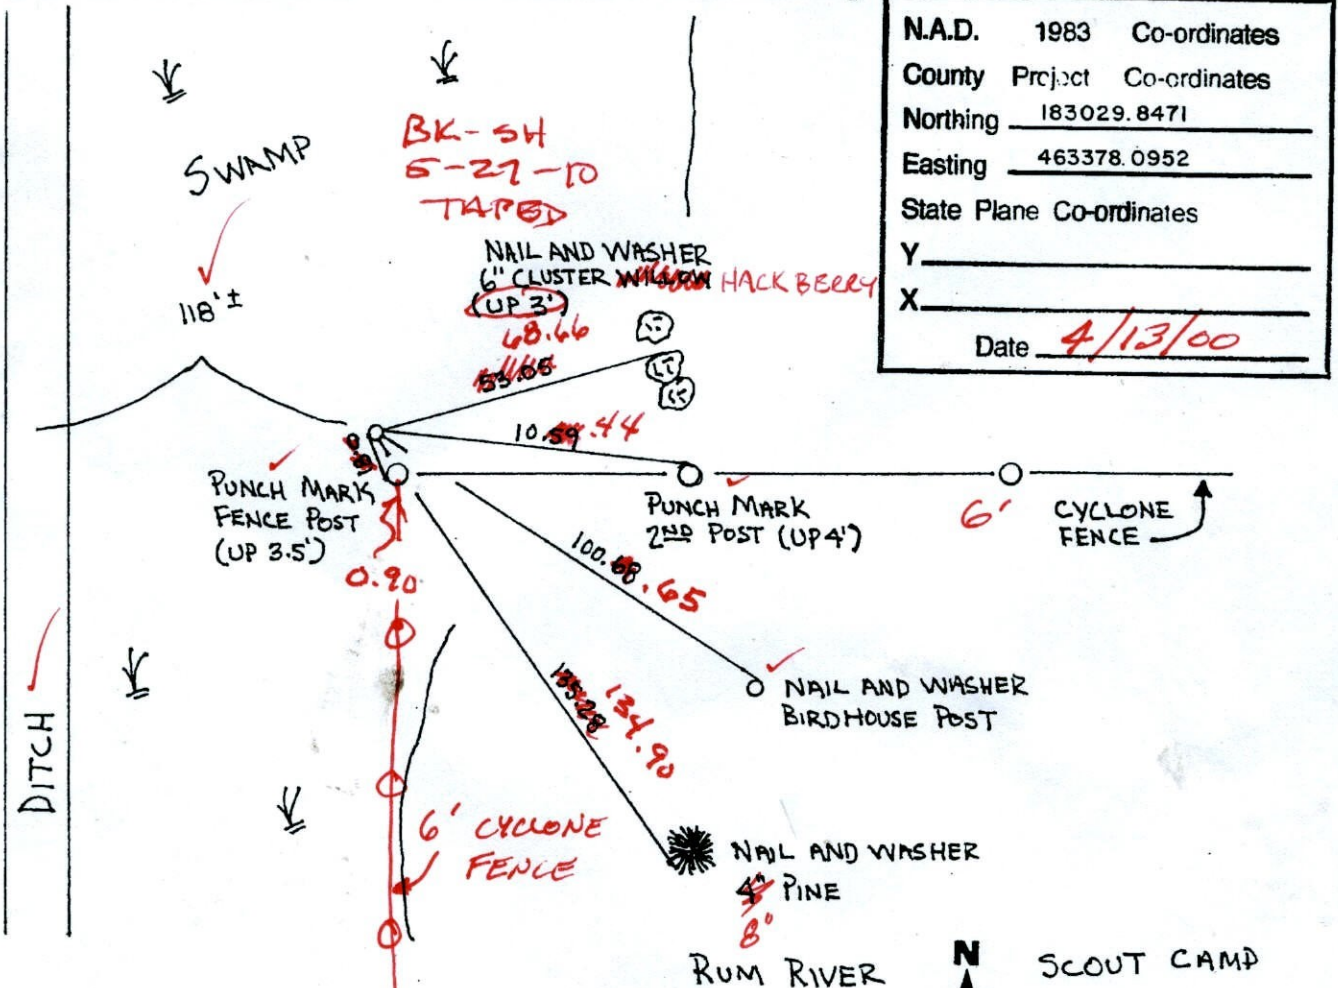 N.A.D. 1983 Co-ordinates
County Project Co-ordinates
Northing 183029.8471
Easting 463378.0952
State Plane Co-ordinates
Y
X
Date 4/13/00
SWAMP
BK-SH
5-27-10
TAPED
118'±
NAIL AND WASHER
6" CLUSTER WILLOW HACKBERRY
(UP 3')
68.66
53.65
10.59 .44
PUNCH MARK
FENCE POST
(UP 3.5')
0.90
PUNCH MARK
2ND POST (UP 4')
6'
CYCLONE
FENCE
100.68 .65
NAIL AND WASHER
BIRDHOUSE POST
135.28 134.90
DITCH
6' CYCLONE
FENCE
NAIL AND WASHER
4" PINE
8"
RUM RIVER
N
SCOUT CAMP